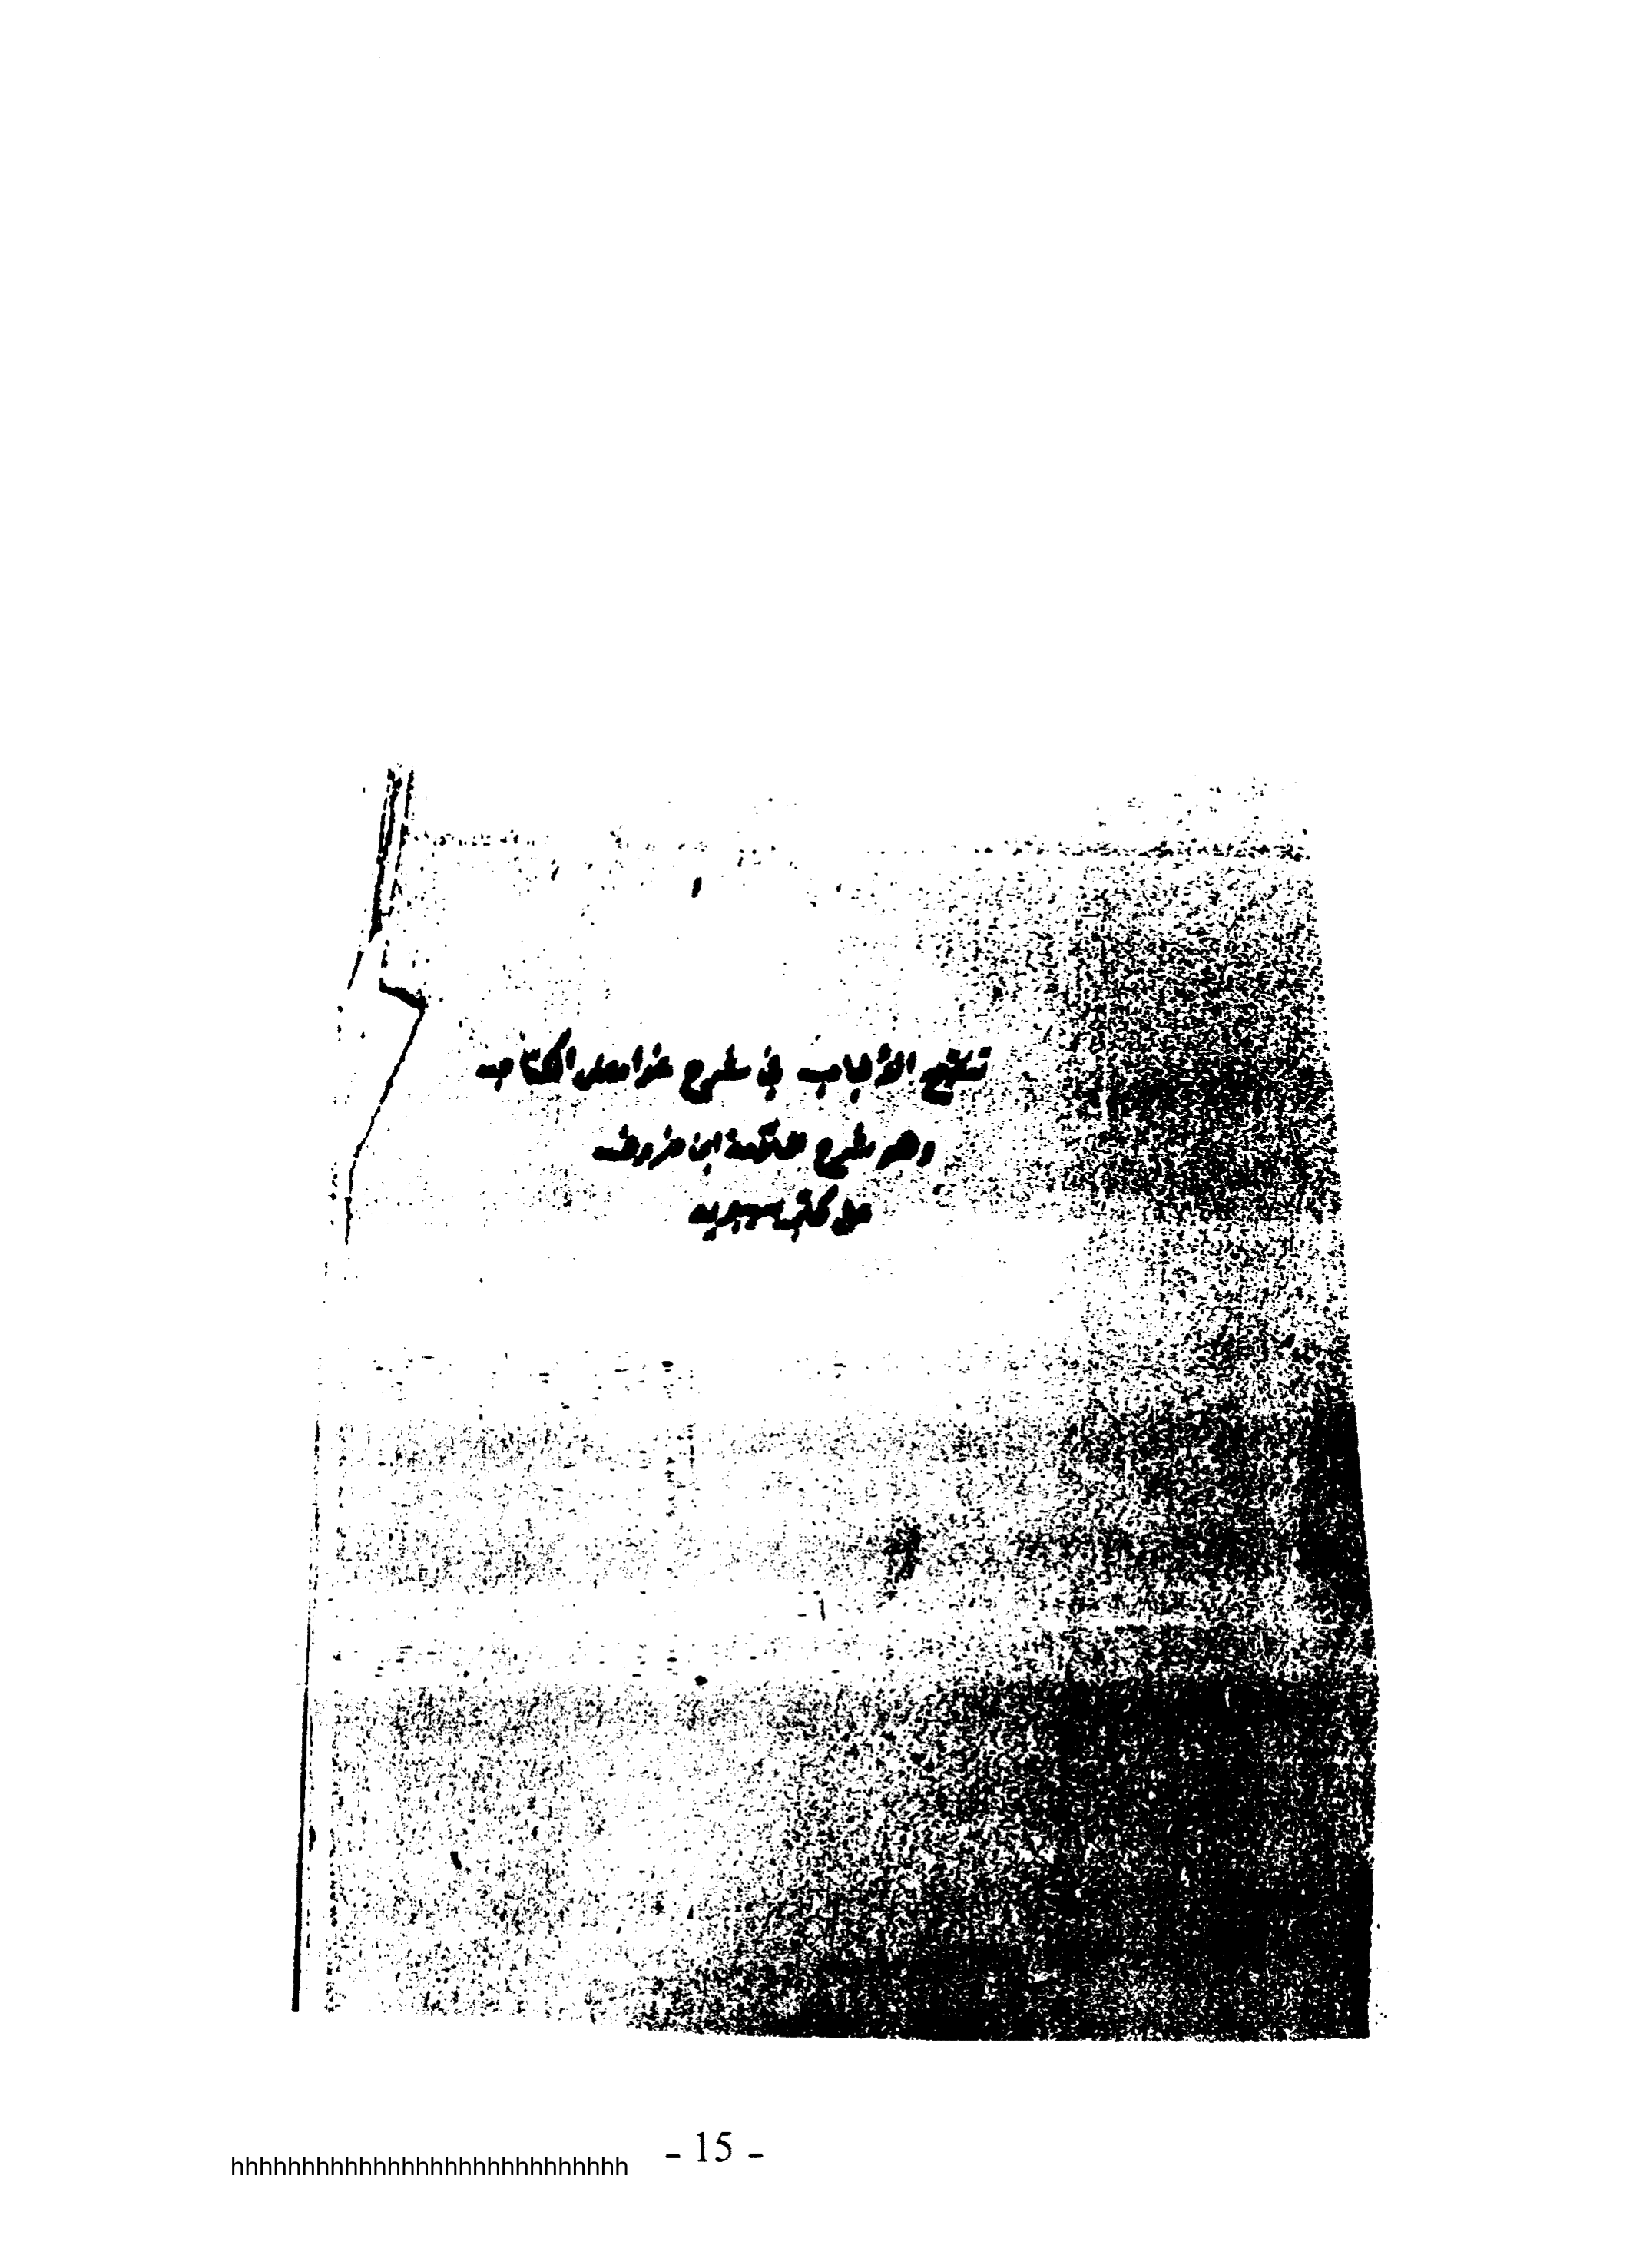 تنقيح الألباب في شرح غوامض الكتاب
وهو شرح العلامة ابن خروف
على كتاب سيبويه
- 15 -
hhhhhhhhhhhhhhhhhhhhhhhhhhhh